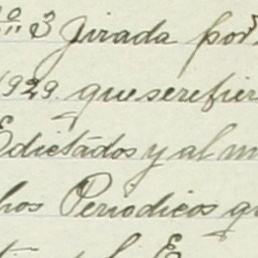 nº 3 jirada por
1929. que se refier
Edictados y al m
hos Periodicos q